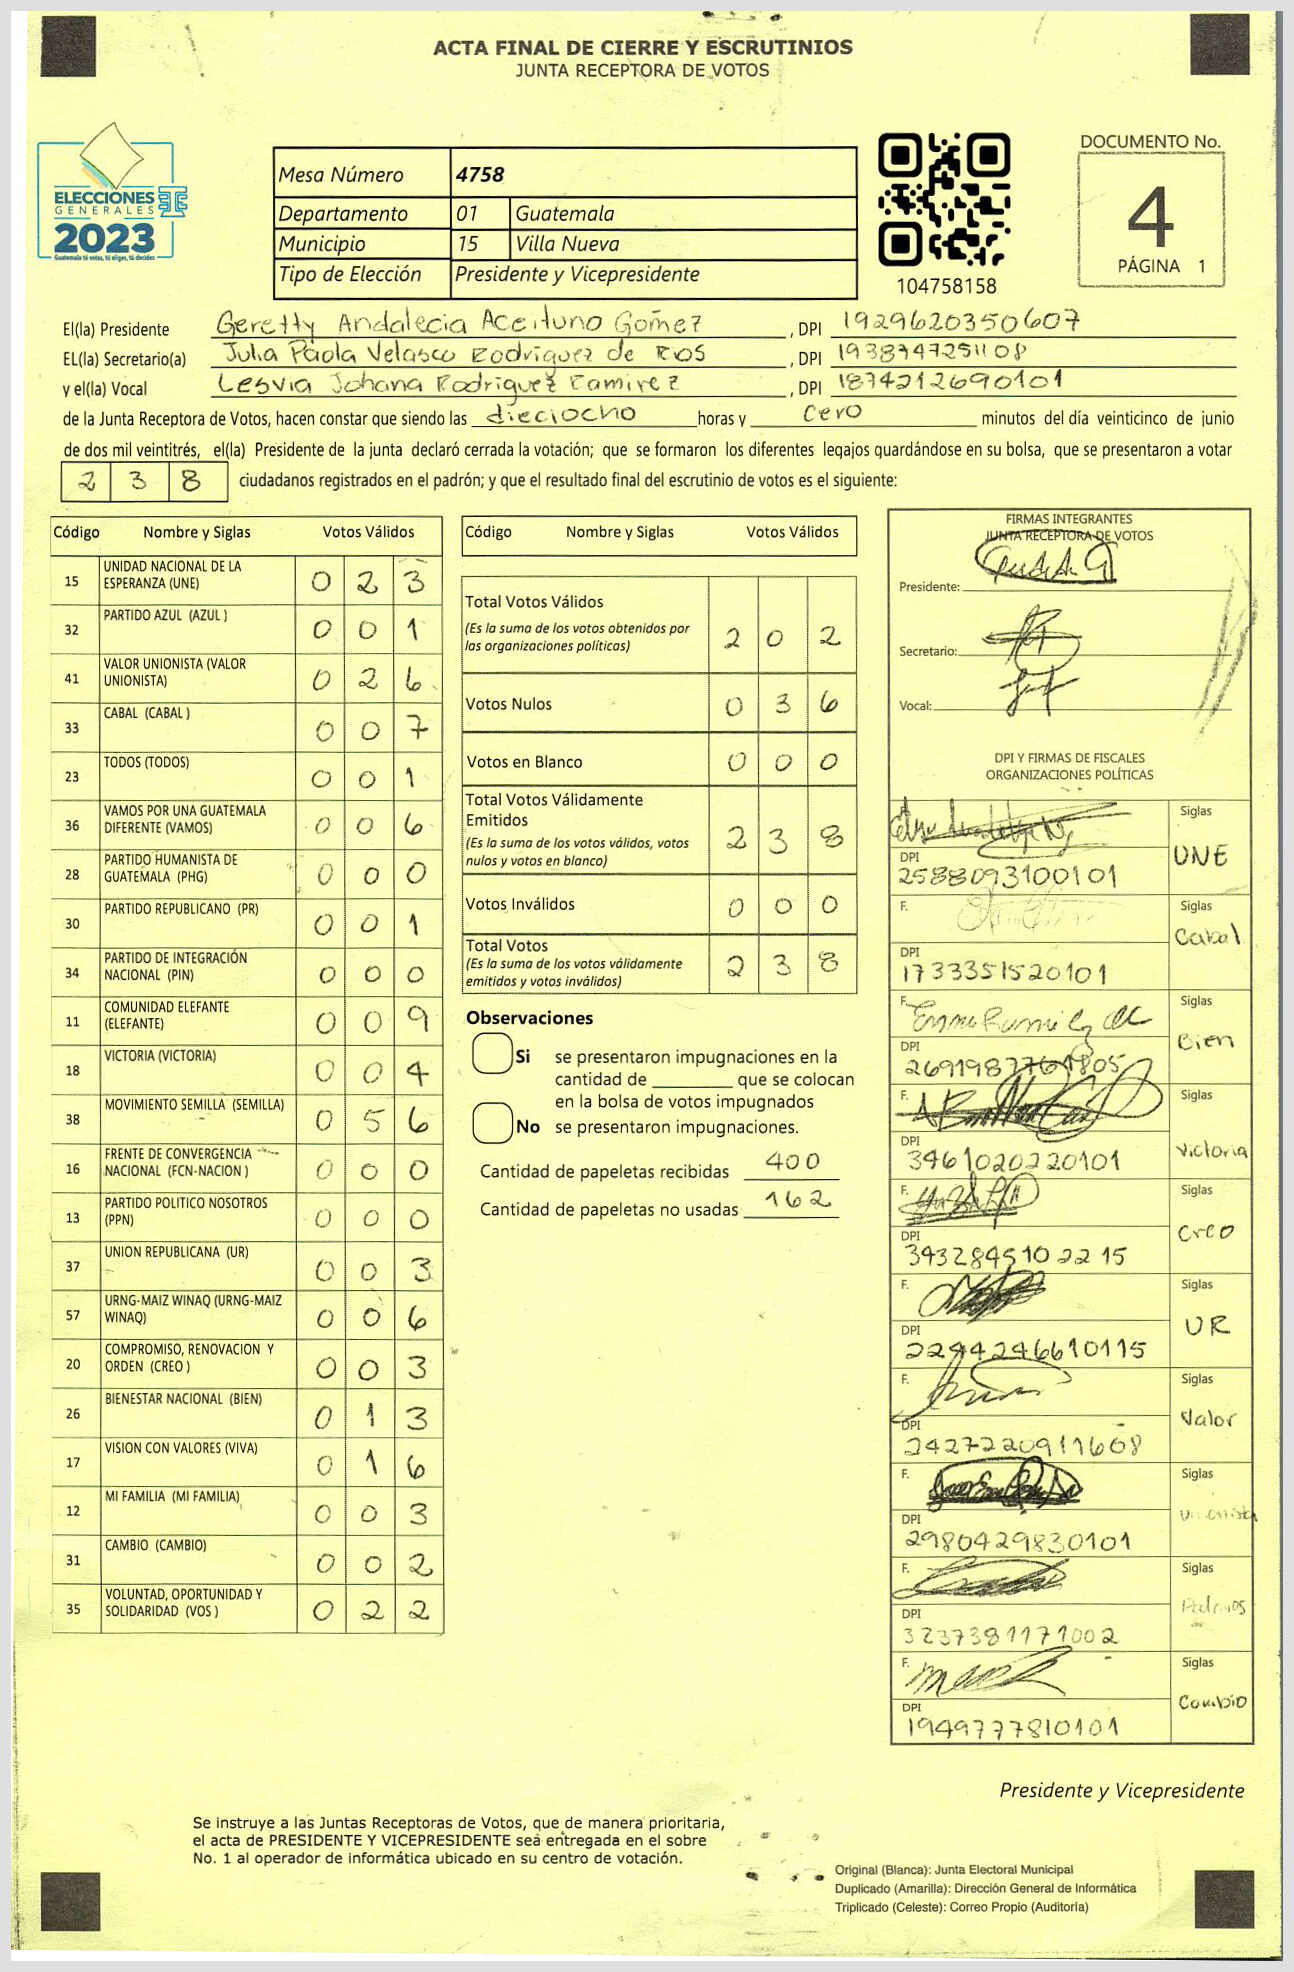 ACTA FINAL DE CIERRE Y ESCRUTINIOS
JUNTA RECEPTORA DE VOTOS
ELECCIONES
GENERALES
2023
Guatemala tú votas, tú eliges, tú decides
Mesa Número 4758
Departamento 01 Guatemala
Municipio 15 Villa Nueva
Tipo de Elección Presidente y Vicepresidente
104758158
DOCUMENTO No.
4
PÁGINA 1
El(la) Presidente Geretty Andalecia Aceituno Gómez , DPI 1929620350607
EL(la) Secretario(a) Julia Paola Velasco Rodriguez de Rios , DPI 1938747251108
y el(la) Vocal Lesvia Johana Rodriguez Ramirez , DPI 1874212690101
de la Junta Receptora de Votos, hacen constar que siendo las dieciocho horas y cero minutos del día veinticinco de junio
de dos mil veintitrés, el(la) Presidente de la junta declaró cerrada la votación; que se formaron los diferentes legajos guardándose en su bolsa, que se presentaron a votar
2 3 8 ciudadanos registrados en el padrón; y que el resultado final del escrutinio de votos es el siguiente:
Código Nombre y Siglas Votos Válidos
15 UNIDAD NACIONAL DE LA ESPERANZA (UNE) 0 2 3
32 PARTIDO AZUL (AZUL ) 0 0 1
41 VALOR UNIONISTA (VALOR UNIONISTA) 0 2 6
33 CABAL (CABAL ) 0 0 7
23 TODOS (TODOS) 0 0 1
36 VAMOS POR UNA GUATEMALA DIFERENTE (VAMOS) 0 0 6
28 PARTIDO HUMANISTA DE GUATEMALA (PHG) 0 0 0
30 PARTIDO REPUBLICANO (PR) 0 0 1
34 PARTIDO DE INTEGRACIÓN NACIONAL (PIN) 0 0 0
11 COMUNIDAD ELEFANTE (ELEFANTE) 0 0 9
18 VICTORIA (VICTORIA) 0 0 4
38 MOVIMIENTO SEMILLA (SEMILLA) 0 5 6
16 FRENTE DE CONVERGENCIA NACIONAL (FCN-NACION ) 0 0 0
13 PARTIDO POLITICO NOSOTROS (PPN) 0 0 0
37 UNION REPUBLICANA (UR) 0 0 3
57 URNG-MAIZ WINAQ (URNG-MAIZ WINAQ) 0 0 6
20 COMPROMISO, RENOVACION Y ORDEN (CREO ) 0 0 3
26 BIENESTAR NACIONAL (BIEN) 0 1 3
17 VISION CON VALORES (VIVA) 0 1 6
12 MI FAMILIA (MI FAMILIA) 0 0 3
31 CAMBIO (CAMBIO) 0 0 2
35 VOLUNTAD, OPORTUNIDAD Y SOLIDARIDAD (VOS ) 0 2 2
Código Nombre y Siglas Votos Válidos
Total Votos Válidos 2 0 2
(Es la suma de los votos obtenidos por
las organizaciones políticas)
Votos Nulos 0 3 6
Votos en Blanco 0 0 0
Total Votos Válidamente
Emitidos 2 3 8
(Es la suma de los votos válidos, votos
nulos y votos en blanco)
Votos Inválidos 0 0 0
Total Votos 2 3 8
(Es la suma de los votos válidamente
emitidos y votos inválidos)
Observaciones
Si se presentaron impugnaciones en la
cantidad de ________ que se colocan
en la bolsa de votos impugnados
No se presentaron impugnaciones.
Cantidad de papeletas recibidas 400
Cantidad de papeletas no usadas 162
FIRMAS INTEGRANTES
JUNTA RECEPTORA DE VOTOS
Presidente:
Secretario:
Vocal:
DPI Y FIRMAS DE FISCALES
ORGANIZACIONES POLÍTICAS
Siglas UNE
DPI 2588093100101
F. Siglas Cabal
DPI 1733351520101
F. Siglas Bien
DPI 2691987761805
F. Siglas Victoria
DPI 3461020220101
F. Siglas Creo
DPI 3432845102215
F. Siglas UR
DPI 2294246610115
F. Siglas Valor
DPI 2427220911608
F. Siglas Unionista
DPI 2980429830101
F. Siglas Podemos
DPI 3237381171002
F. Siglas Cambio
DPI 1949777810101
Presidente y Vicepresidente
Se instruye a las Juntas Receptoras de Votos, que de manera prioritaria,
el acta de PRESIDENTE Y VICEPRESIDENTE sea entregada en el sobre
No. 1 al operador de informática ubicado en su centro de votación.
Original (Blanca): Junta Electoral Municipal
Duplicado (Amarilla): Dirección General de Informática
Triplicado (Celeste): Correo Propio (Auditoría)